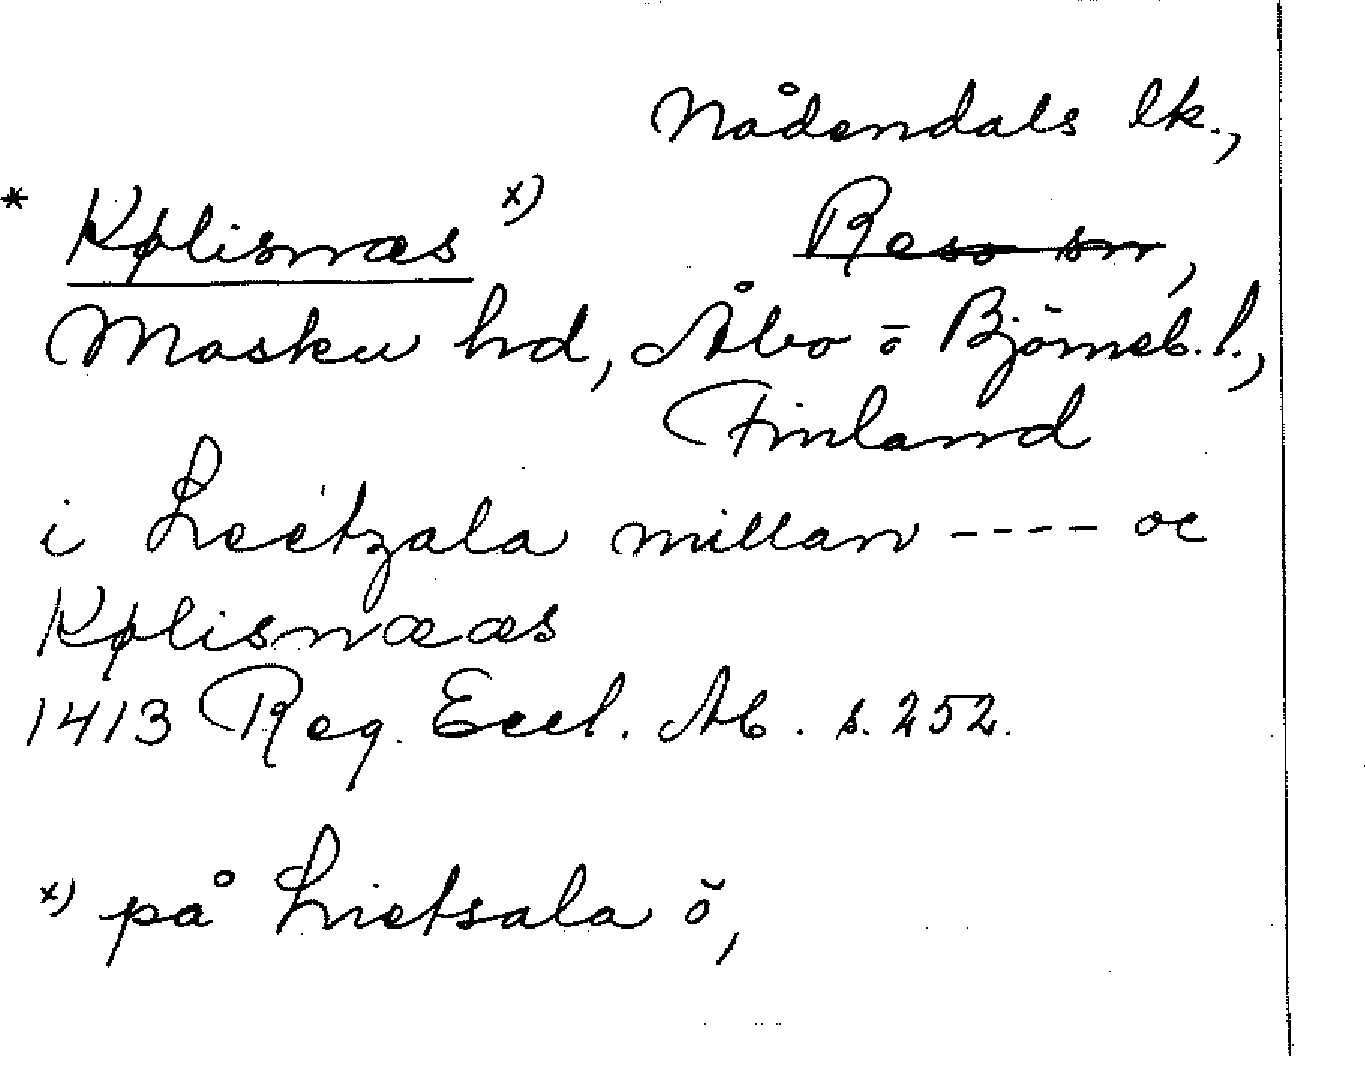 Nådendals lk.,
* Kølisnæs x) Reso sn,
Masku hd, Åbo ō Björneb. l.,
Finland
i Leetzala millan ---- oc
Kølisnææs
1413 Reg. Eccl. Ab. s. 252.
x) på Lietsala ö,